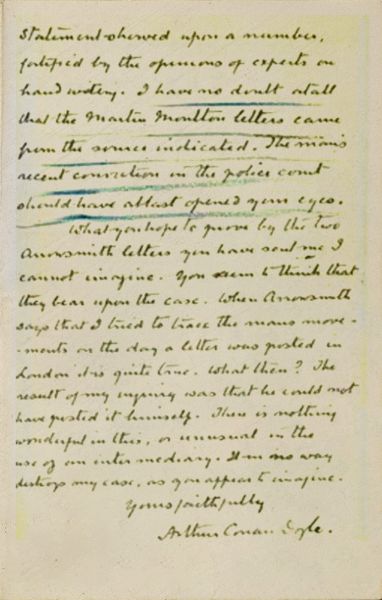 Statement showed upon a number,
fortified by the opinions of experts on
hand writing. I have no doubt at all
that the Martin Moulton letters came
from the source indicated. The man's
recent conviction in the police court
should have at last opened your eyes.
What you hope to prove by the two
Arrowsmith letters you have sent me I
cannot imagine. You seem to think that
they bear upon the case. When Arrowsmith
says that I tried to trace the mans move-
-ments on the day a letter was posted in
London it is quite true. What then? The
result of my inquiry was that he could not
have posted it himself. There is nothing
wonderful in this, or unusual in the
use of an intermediary. It in no way
destroys my case, as you appear to imagine.
Yours faithfully
Arthur Conan Doyle.